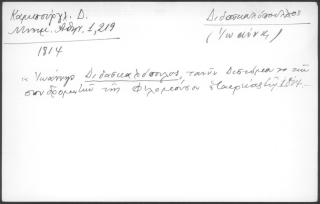 Καμπούρογλ. Δ.
Μνημ. Αθην. 1, 219
Διδασκαλόπουλος
(Ιωάννης)
1814
« Ιωάννης Διδασκαλόπουλος,
συνδρομητής της Φιλομούσου Εταιρείας 1814.—